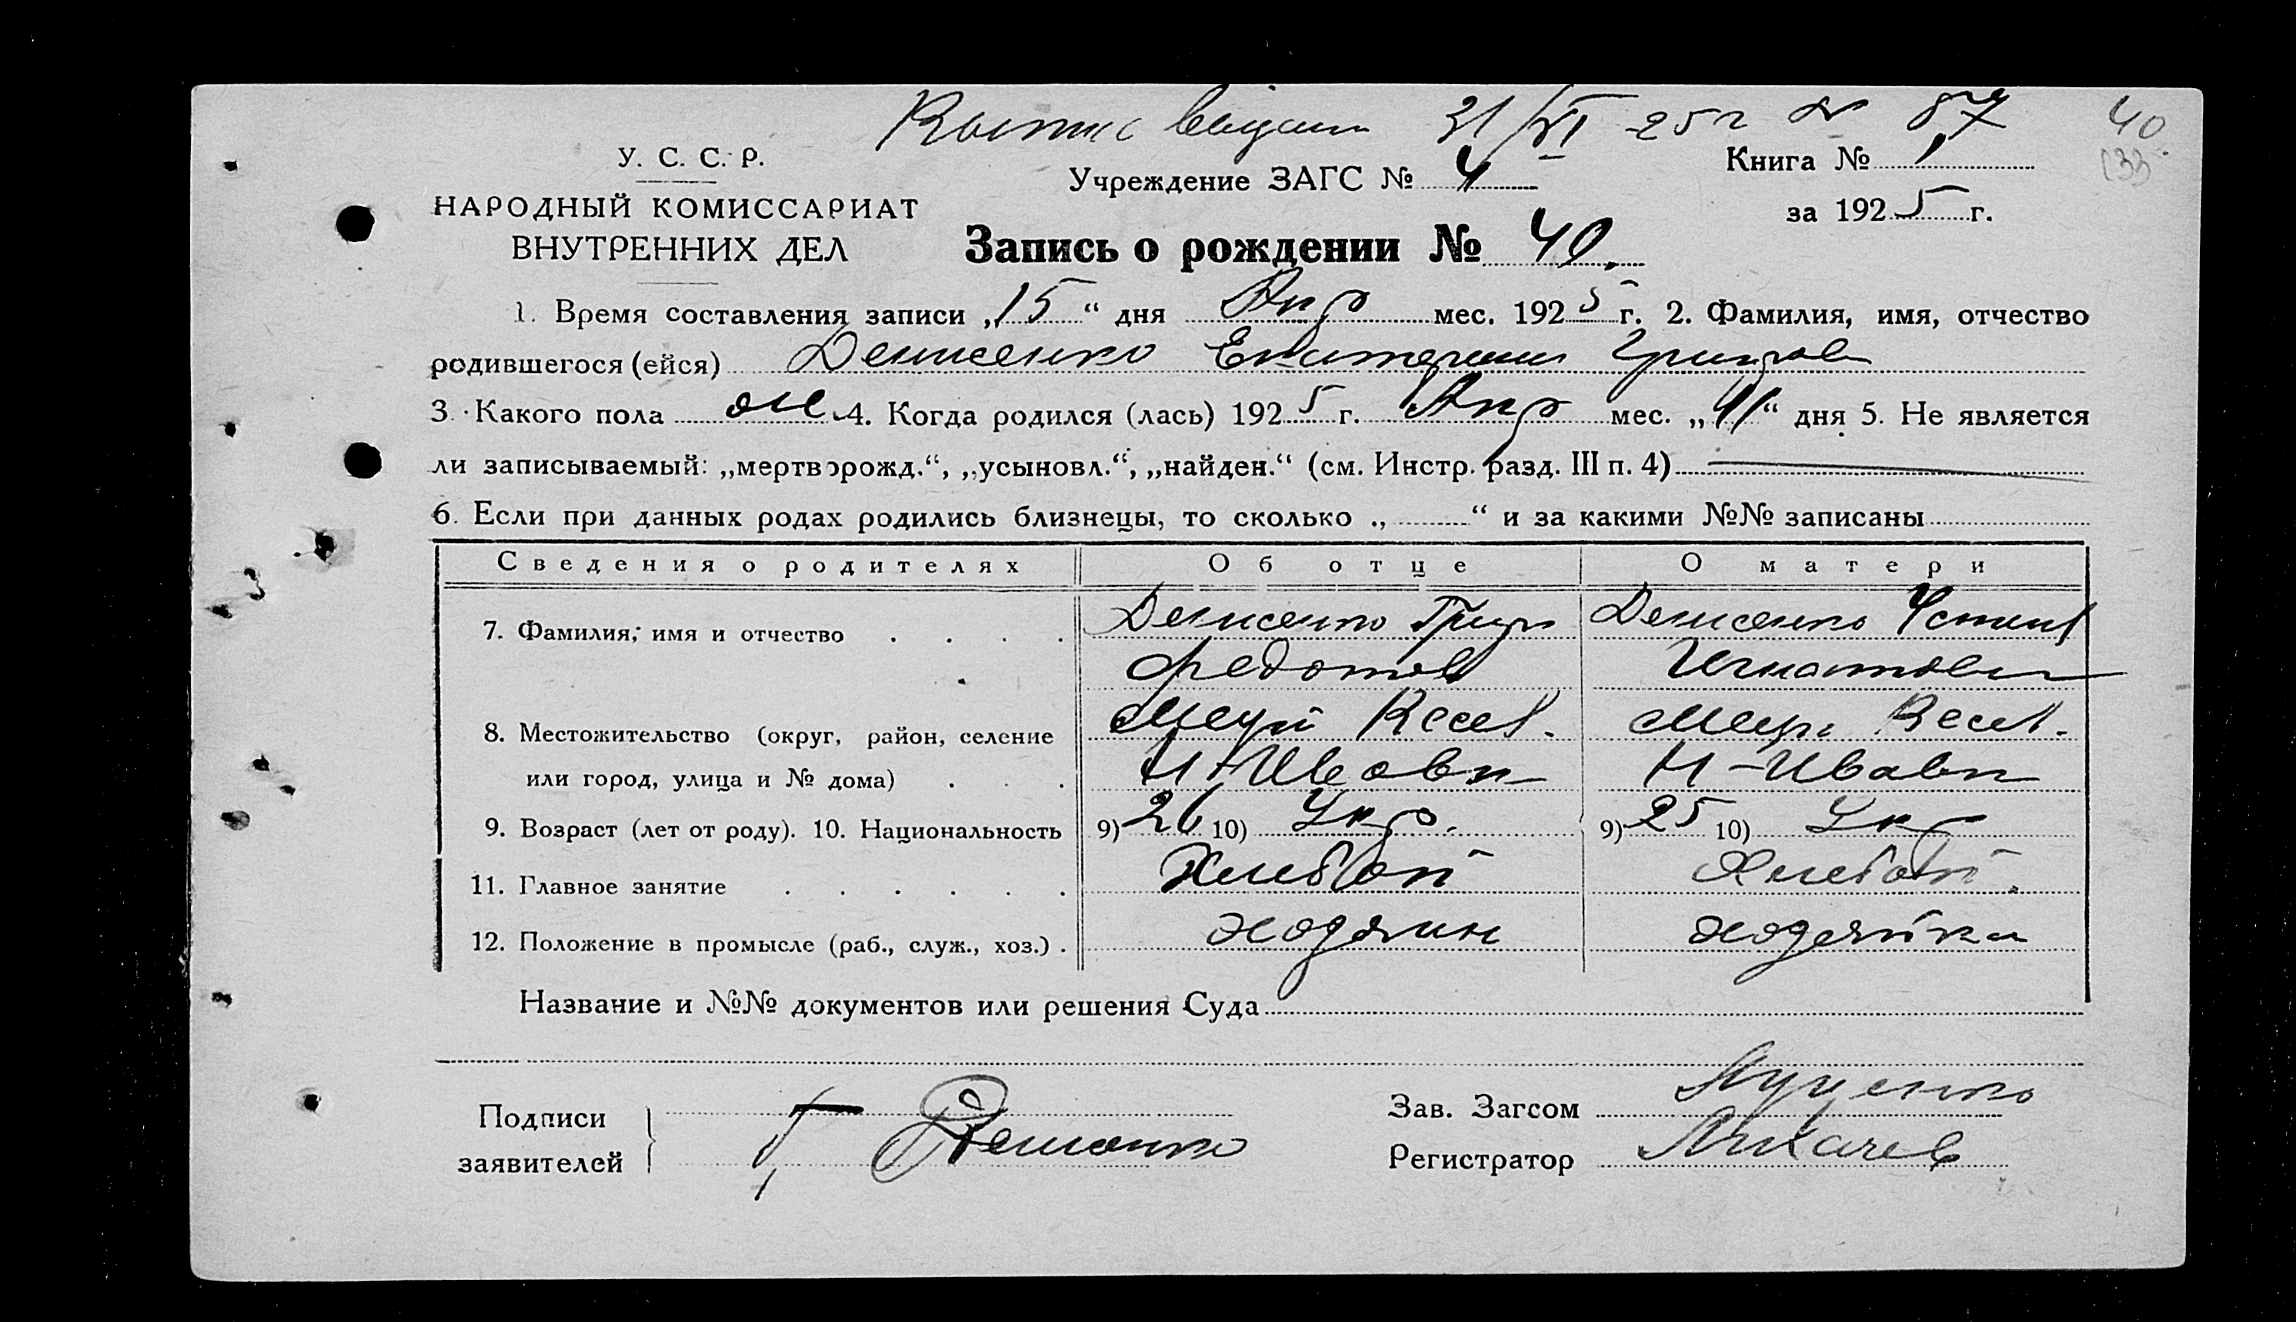 25 г № 87
40
133
У. С. С. Р.
Учреждение ЗАГС № 4
Книга № 1
НАРОДНЫЙ КОМИССАРИАТ
за 1925 г.
ВНУТРЕННИХ ДЕЛ
Запись о рождении № 40.
1. Время составления записи „15“ дня Апр мес. 1925 г. 2. Фамилия, имя, отчество
родившегося (ейся) Денисенко Екатерина Григров
3. Какого пола 4. Когда родился (лась) 1925 г. Апр мес. „11“ дня 5. Не является
ли записываемый: „мертворожд.“, „усыновл.“, „найден.“ (см. Инстр. разд. III п. 4)
6. Если при данных родах родились близнецы, то сколько „ “ и за какими №№ записаны
Сведения о родителях Об отце О матери
7. Фамилия, имя и отчество Денисенко Григр Денисенко Устина
Федотов Игнатовна
8. Местожительство (округ, район, селение
или город, улица и № дома) Н-Ивановк Н-Ивановк
9. Возраст (лет от роду). 10. Национальность 9) 26 10) Укр. 9) 25 10) Укр
11. Главное занятие Хлебоп Хлебоп.
12. Положение в промысле (раб., служ., хоз.) хозяин хозяйка
Название и №№ документов или решения Суда
Подписи
заявителей
Г Денисенко
Зав. Загсом Луценко
Регистратор Лихачев